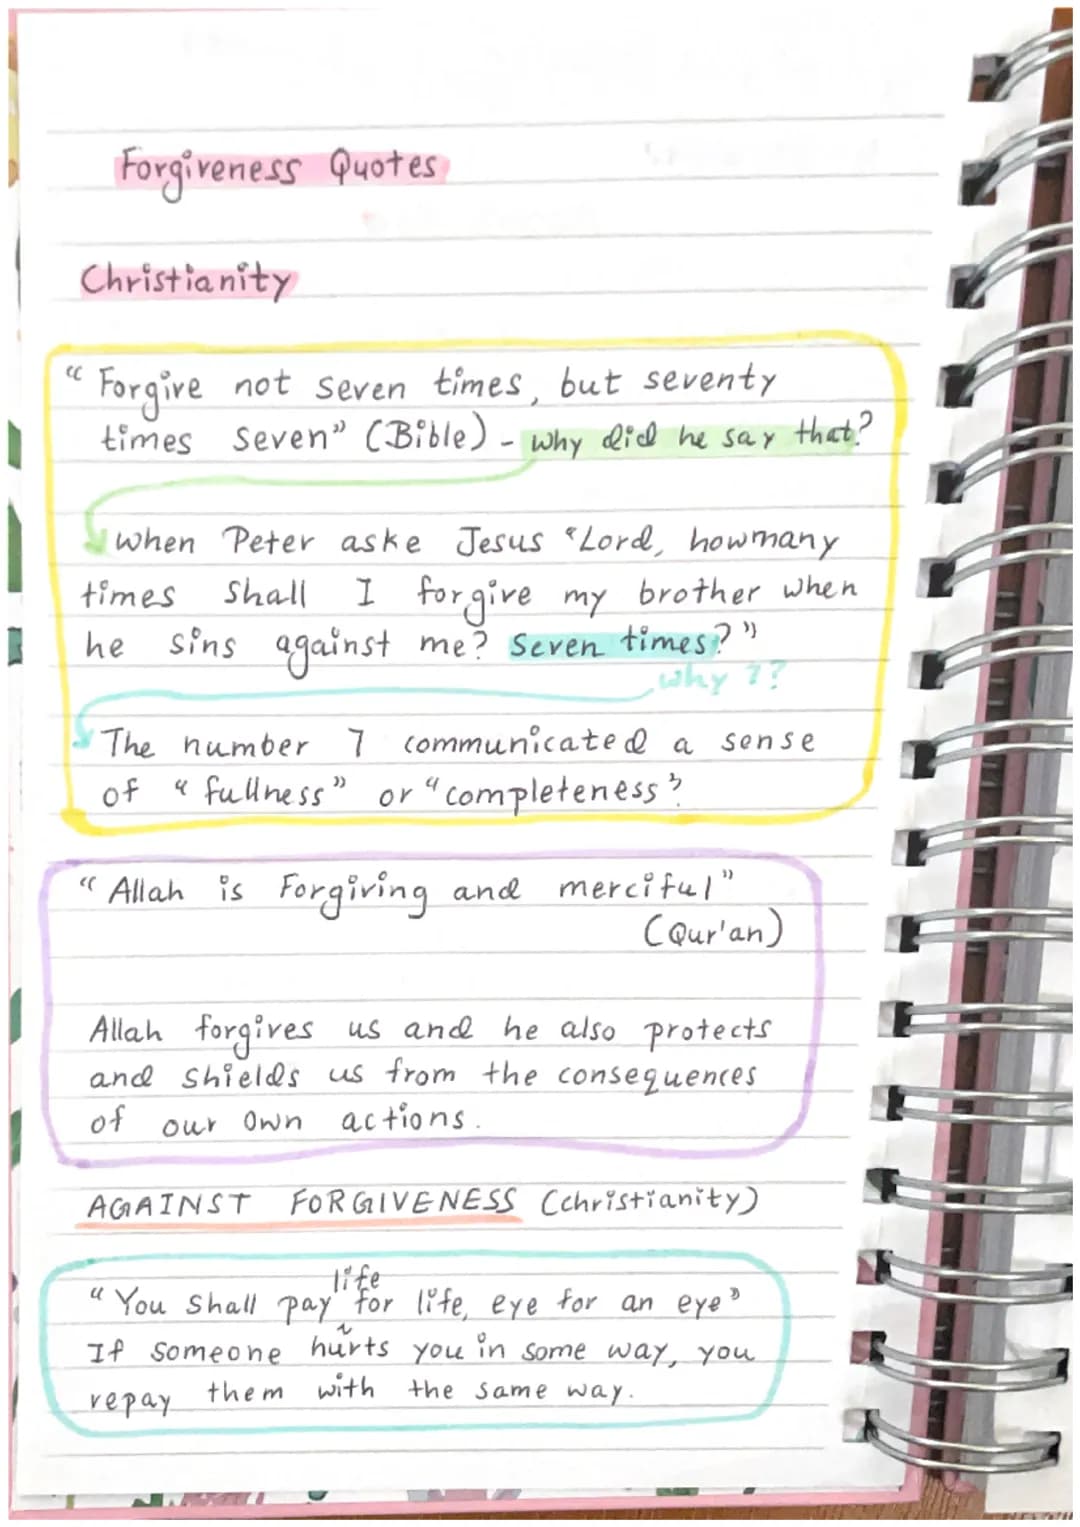 Forgiveness Quotes
Christianity
“ Forgive not seven times, but seventy
times seven” (Bible) - why did he say that?
when Peter aske Jesus “Lord, howmany
times shall I forgive my brother when
he sins against me? Seven times?”
why ??
The number 7 communicated a sense
of “ fullness” or “completeness”
“ Allah is Forgiving and merciful”
(Qur'an)
Allah forgives us and he also protects
and shields us from the consequences
of our own actions.
AGAINST FORGIVENESS (christianity)
life
“ You shall pay for life, eye for an eye”
If someone hurts you in some way, you
repay them with the same way.